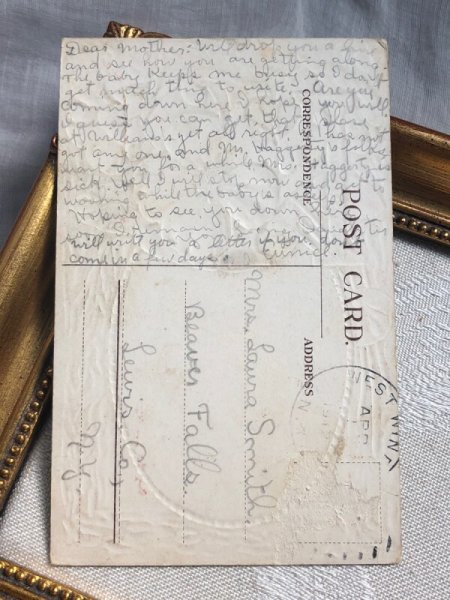 Dear Mother: Will drop you a line
and see how you are getting along.
The baby keeps me busy so I don't
get much time to write. Are you
coming down here I hope you will
because you can get that place
at all right. I has not
got any one, and Mr.
want you for a while Mrs. is
sick. Well I will stop now and get to
while the baby's asleep.
Hoping to see you down here
soon
will write you a letter if you don't
come in a few days.
POST CARD.
CORRESPONDENCE
ADDRESS
Mrs. Laura Smith
Beaver Falls
Lewis Co,
N.Y.
WEST WIN
APR